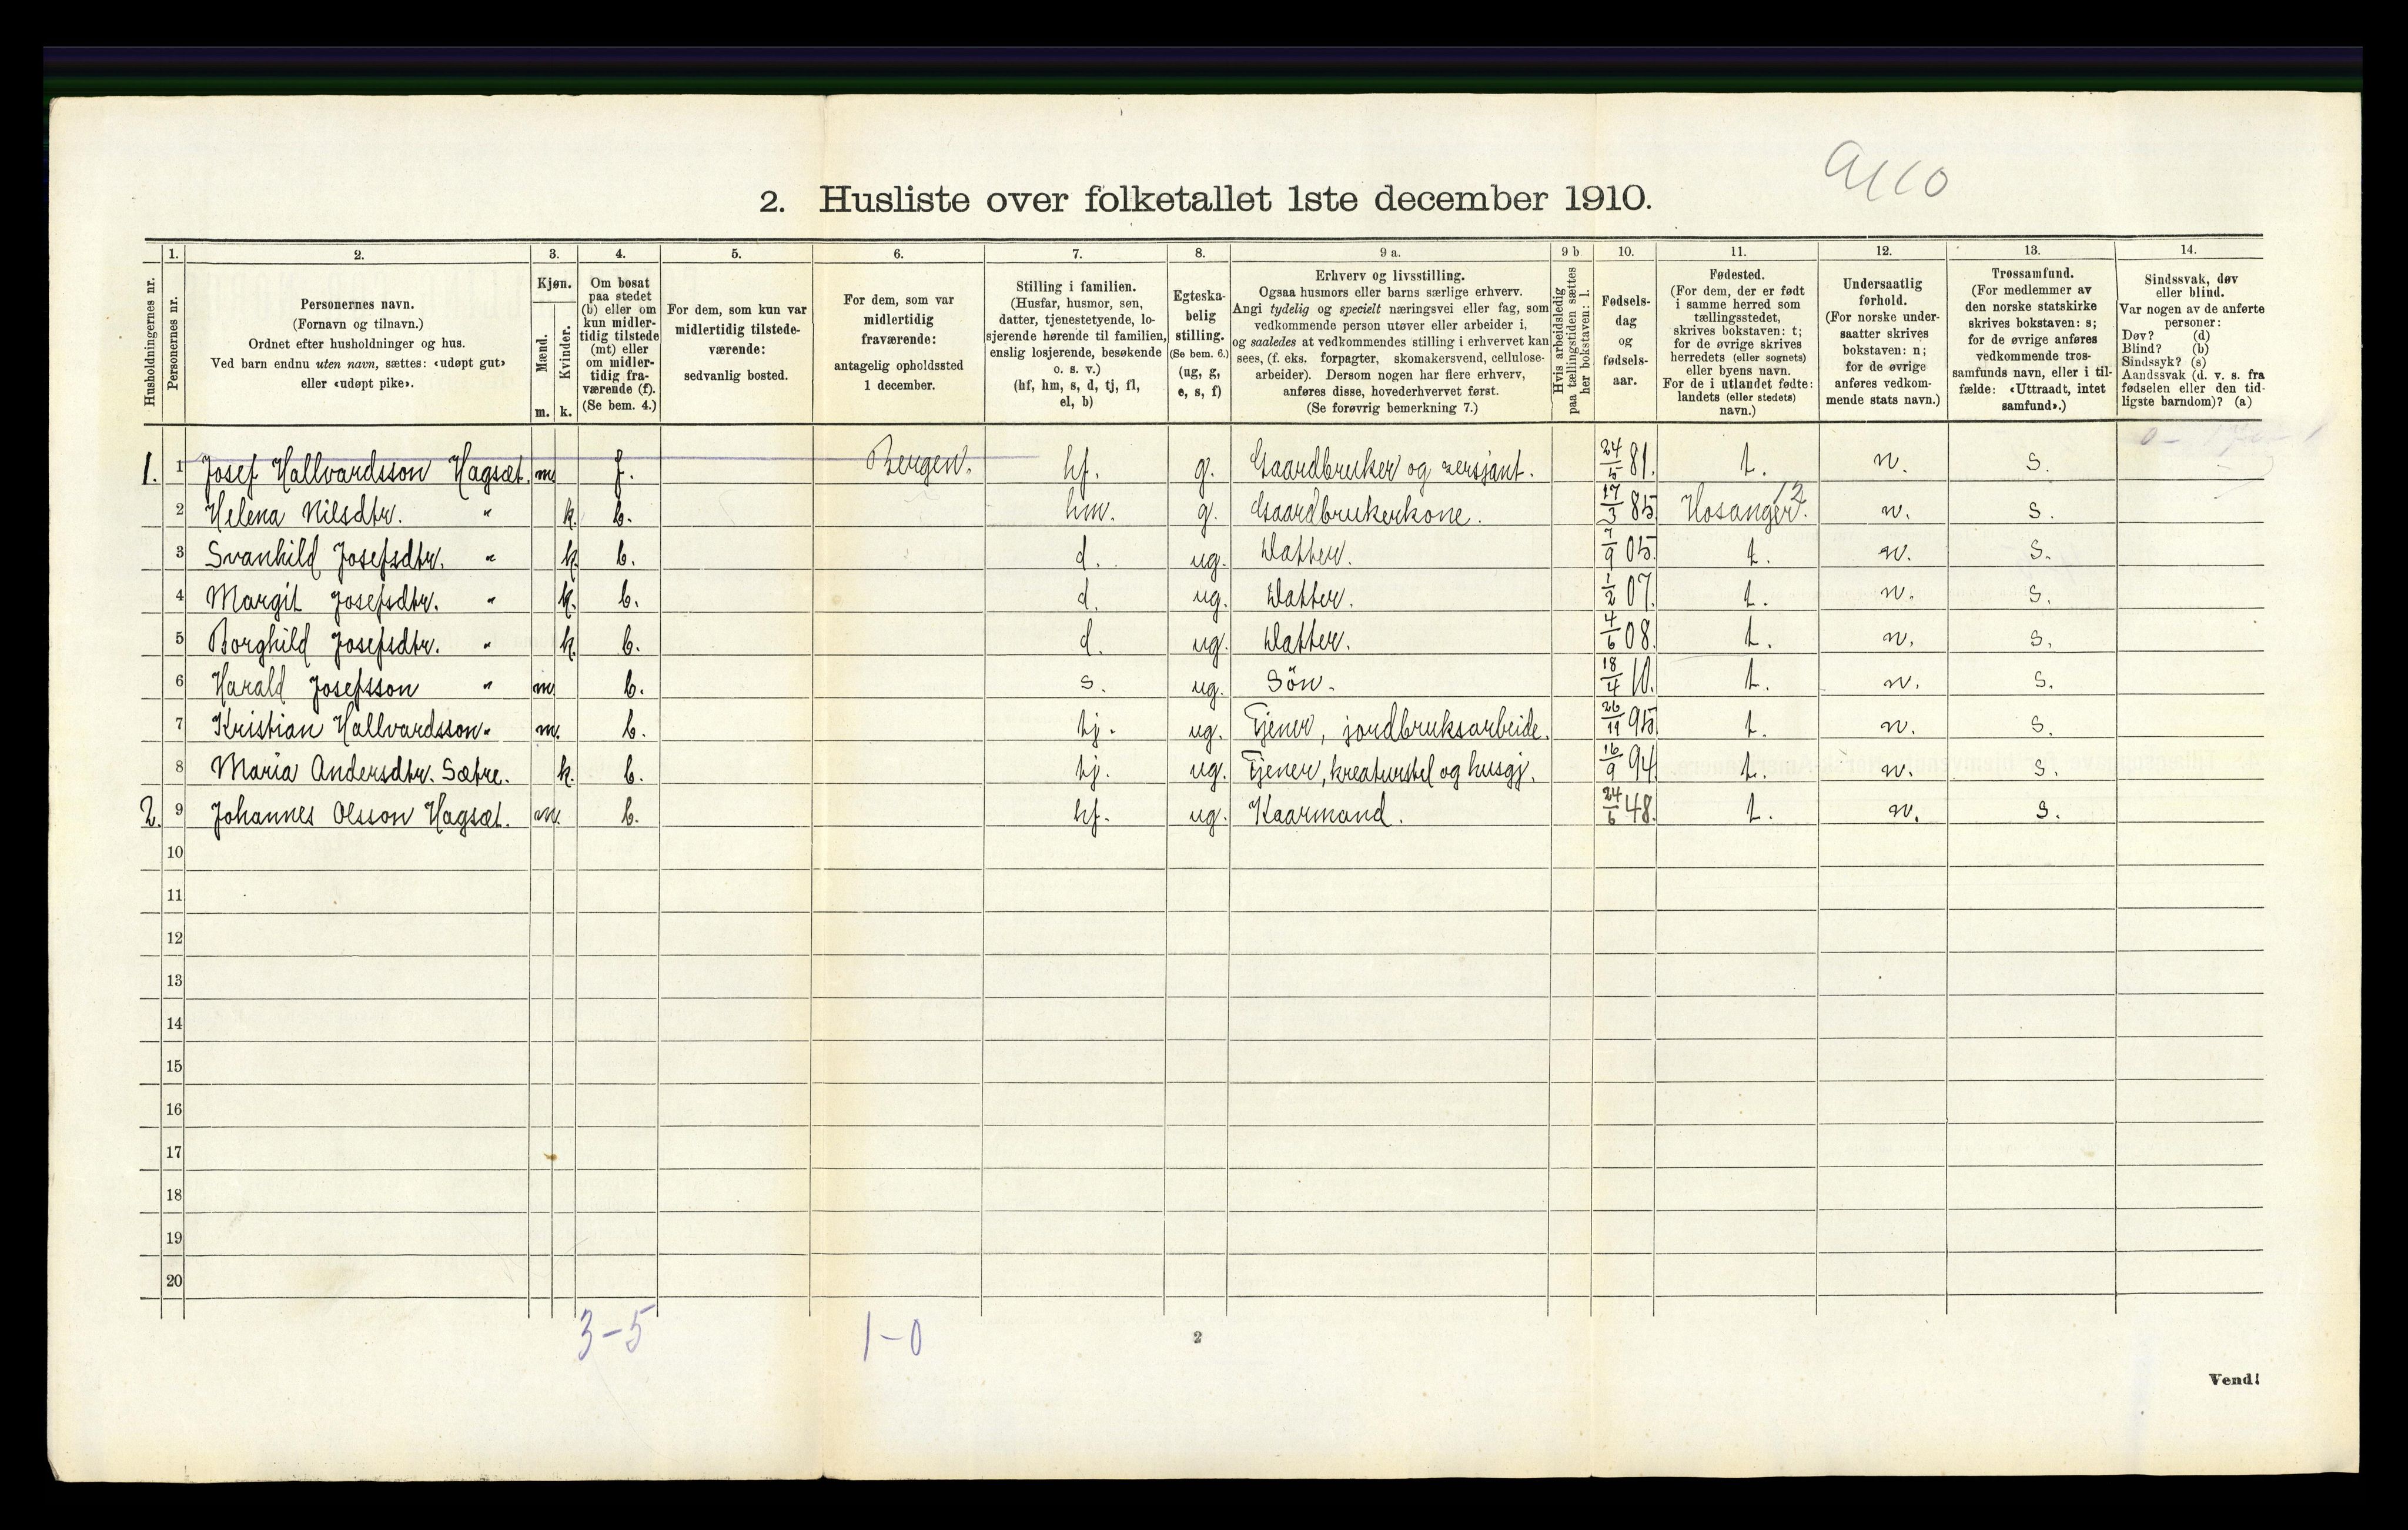 2. Husliste over folketallet 1ste december 1910.
Husholdningernes nr.
1.
Personernes nr.
2.
Personernes navn.
(Fornavn og tilnavn.)
Ordnet efter husholdninger og hus.
Ved barn endnu uten navn, sættes: «udøpt gut»
eller «udøpt pike».
3.
Kjøn.
Mænd.
Kvinder.
m. k.
4.
Om bosat
paa stedet
(b) eller om
kun midler-
tidig tilstede
(mt) eller
om midler-
tidig fra-
værende (f).
(Se bem. 4.)
5.
For dem, som kun var
midlertidig tilstede-
værende:
sedvanlig bosted.
6.
For dem, som var
midlertidig
fraværende:
antagelig opholdssted
1 december.
7.
Stilling i familien.
(Husfar, husmor, søn,
datter, tjenestetyende, lo-
sjerende hørende til familien,
enslig losjerende, besøkende
o. s. v.)
(hf, hm, s, d, tj, fl,
el, b)
8.
Egteska-
belig
stilling.
(Se bem. 6.)
(ug, g,
e, s, f)
9 a.
Erhverv og livsstilling.
Ogsaa husmors eller barns særlige erhverv.
Angi tydelig og specielt næringsvei eller fag, som
vedkommende person utøver eller arbeider i,
og saaledes at vedkommendes stilling i erhvervet kan
sees, (f. eks. forpagter, skomakersvend, cellulose-
arbeider). Dersom nogen har flere erhverv,
anføres disse, hovederhvervet først.
(Se forøvrig bemerkning 7.)
9 b
Hvis arbeidsledig
paa tællingstiden sættes
her bokstaven: l.
10.
Fødsels-
dag
og
fødsels-
aar.
11.
Fødested.
(For dem, der er født
i samme herred som
tællingsstedet,
skrives bokstaven: t;
for de øvrige skrives
herredets (eller sognets)
eller byens navn.
For de i utlandet fødte:
landets (eller stedets)
navn.)
12.
Undersaatlig
forhold.
(For norske under-
saatter skrives
bokstaven: n;
for de øvrige
anføres vedkom-
mende stats navn.)
13.
Trossamfund.
(For medlemmer av
den norske statskirke
skrives bokstaven: s;
for de øvrige anføres
vedkommende tros-
samfunds navn, eller i til-
fælde: «Uttraadt, intet
samfund».)
14.
Sindssvak, døv
eller blind.
Var nogen av de anførte
personer:
Døv? (d)
Blind? (b)
Sindssyk? (s)
Aandssvak (d. v. s. fra
fødselen eller den tid-
ligste barndom)? (a)
1. 1 Josef Hallvardsson Hagsæt. m. f. Bergen. hf. g. Gaardbruker og sersjant. 24/5 81. t. n. s.
2 Helena Nilsdtr. " k. b. hm. g. Gaardbrukerkone. 17/3 85 Hosanger. 12 n. s.
3 Svanhild Josefsdtr. " k. b. d. ug. Datter. 7/9 05. t. n. s.
4 Margit Josefsdtr. " k. b. d. ug. Datter. 1/2 07. t. n. s.
5 Borghild Josefsdtr. " k. b. d. ug. Datter. 4/6 08. t. n. s.
6 Harald Josefsson " m. b. s. ug. Sön. 18/4 10. t. n. s.
7 Kristian Hallvardsson " m. b. tj. ug. Tjener, jordbruksarbeide. 26/11 95 t. n. s.
8 Maria Andersdtr. Sætre. k. b. tj. ug. Tjener, kreaturstel og husgj. 16/9 94. t. n. s.
2. 9 Johannes Olsson Hagsæt. m. b. hf. ug. Kaarmand. 24/6 48. t. n. s.
10
11
12
13
14
15
16
17
18
19
20
3-5 1-0
2
Vend!